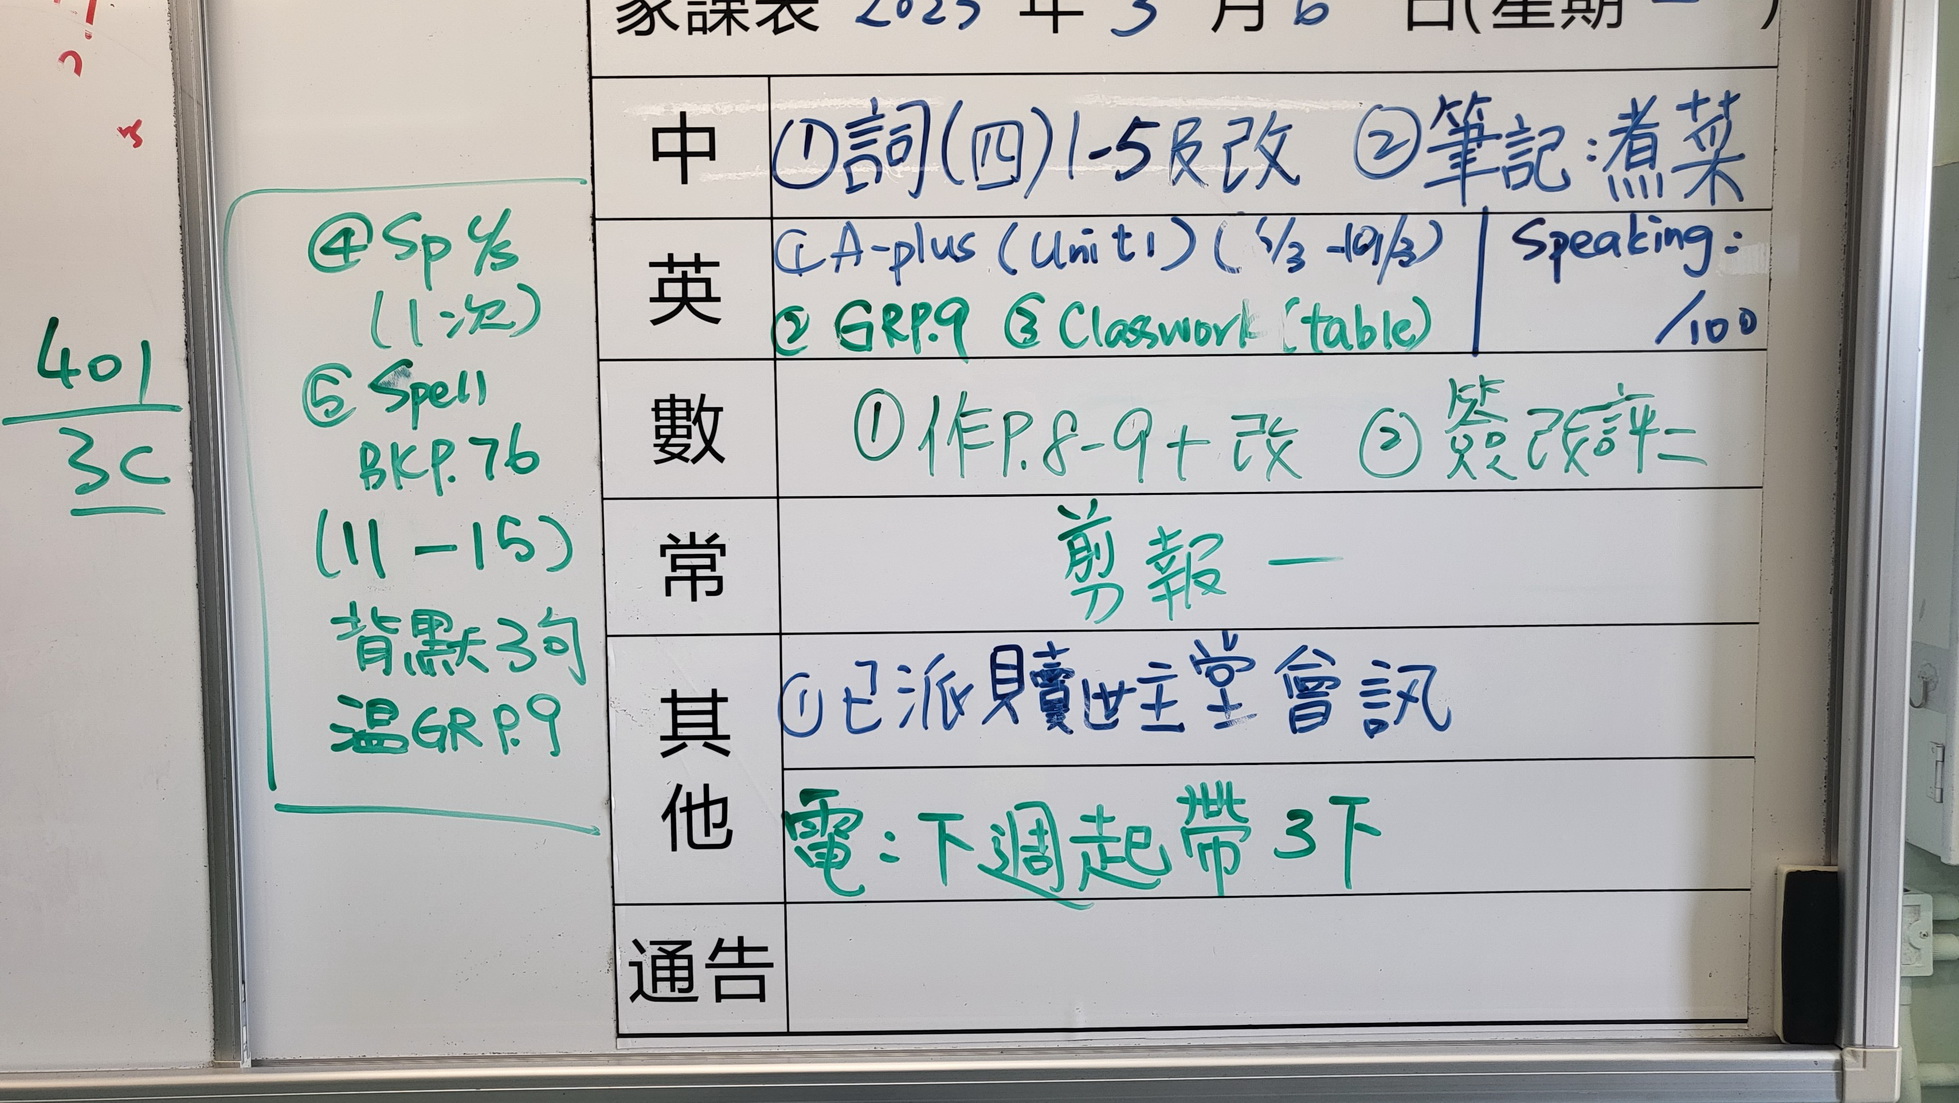 家課表 2023 年 3 月 6 日(星期一)
中 ①詞(四)1-5及改 ②筆記:煮菜
英 ①A-plus (Unit1) ( -10/3) | Speaking:
② GRP.9 ③ Classwork (table) /100
數 ①作P.8-9+改 ②簽改評二
常 剪報一
其他 ①已派贖世主堂會訊
電:下週起帶3下
通告
④Sp
(1次)
⑤ Spell
BKP.76
(11-15)
背默3句
温GRP.9
401
3C